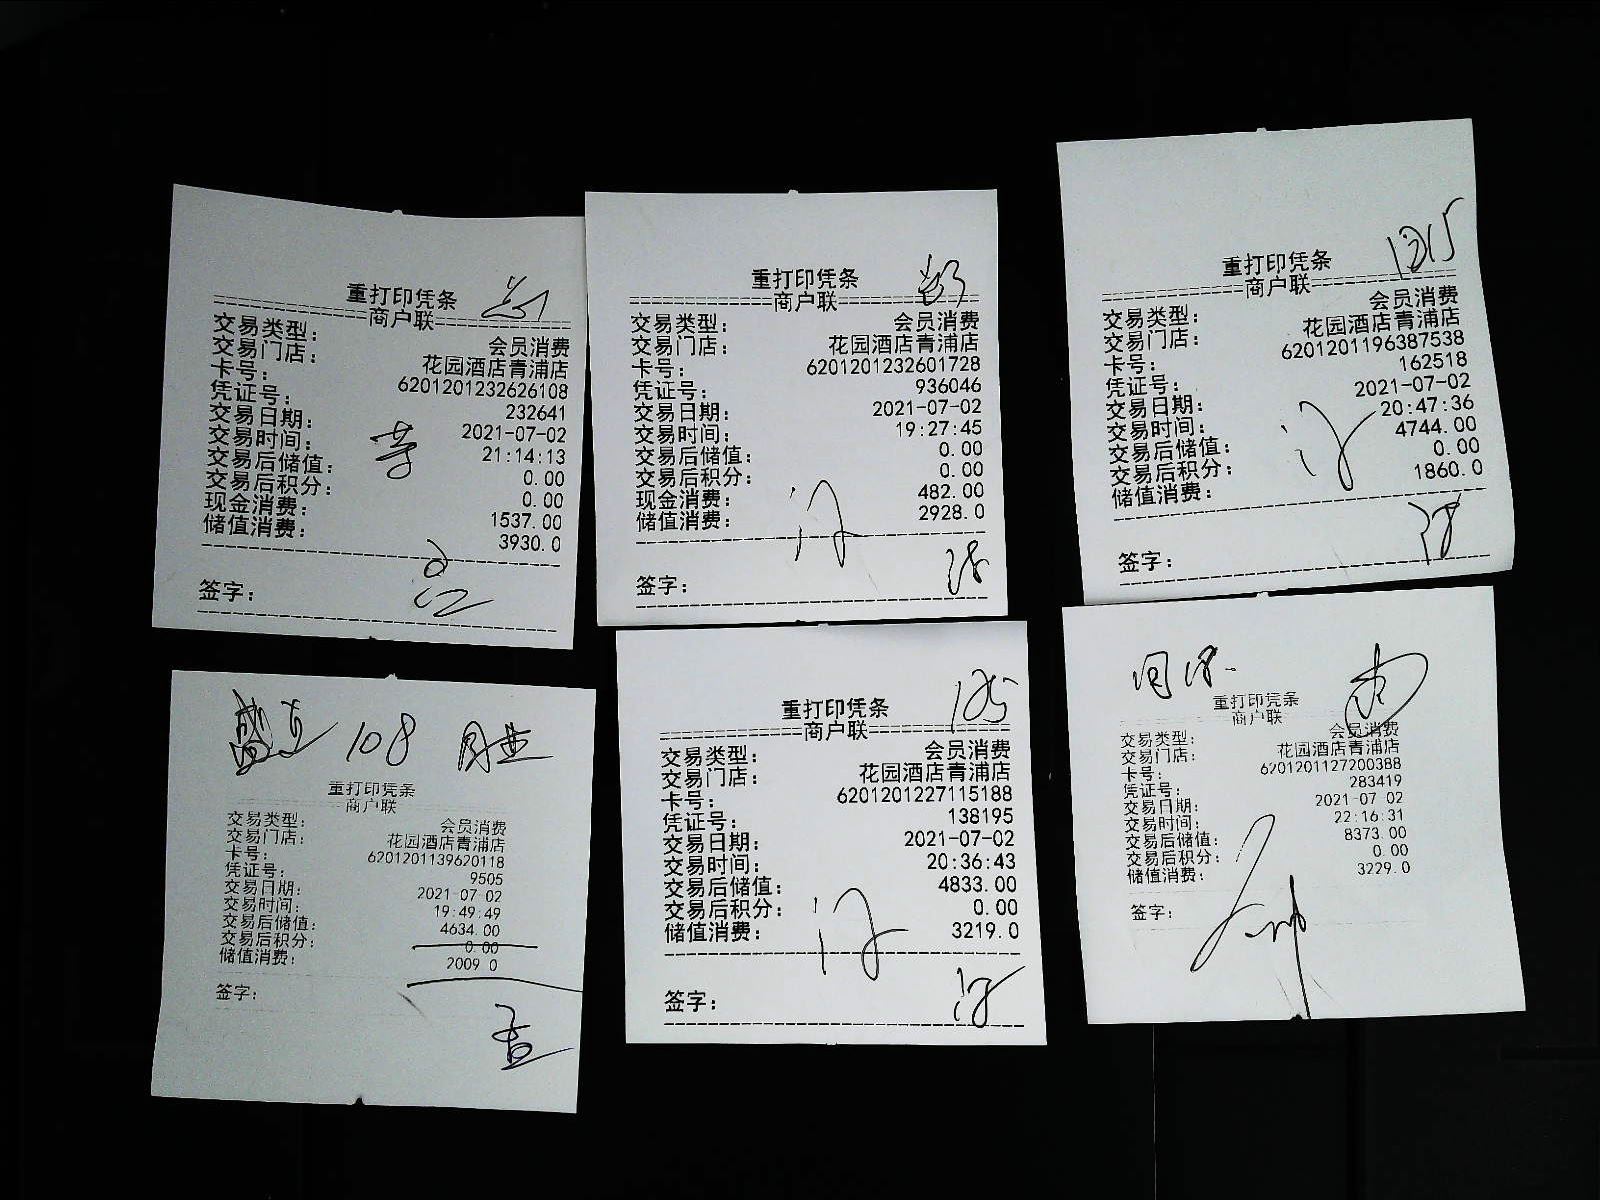 重打印凭条
商户联
交易类型: 会员消费
交易门店: 花园酒店青浦店
卡号: 6201201232626108
凭证号: 232641
交易日期: 2021-07-02
交易时间: 21:14:13
交易后储值: 0.00
交易后积分: 0.00
现金消费: 1537.00
储值消费: 3930.0
签字:
重打印凭条
商户联
交易类型: 会员消费
交易门店: 花园酒店青浦店
卡号: 6201201232601728
凭证号: 936046
交易日期: 2021-07-02
交易时间: 19:27:45
交易后储值: 0.00
交易后积分: 0.00
现金消费: 482.00
储值消费: 2928.0
签字:
1215
重打印凭条
商户联
交易类型: 会员消费
交易门店: 花园酒店青浦店
卡号: 6201201196387538
凭证号: 162518
交易日期: 2021-07-02
交易时间: 20:47:36
交易后储值: 4744.00
交易后积分: 0.00
储值消费: 1860.0
签字:
108
重打印凭条
商户联
交易类型: 会员消费
交易门店: 花园酒店青浦店
卡号: 6201201139620118
凭证号: 9505
交易日期: 2021-07-02
交易时间: 19:49:49
交易后储值: 4634.00
交易后积分: 0.00
储值消费: 2009.0
签字:
125
重打印凭条
商户联
交易类型: 会员消费
交易门店: 花园酒店青浦店
卡号: 6201201227115188
凭证号: 138195
交易日期: 2021-07-02
交易时间: 20:36:43
交易后储值: 4833.00
交易后积分: 0.00
储值消费: 3219.0
签字:
重打印凭条
商户联
交易类型: 会员消费
交易门店: 花园酒店青浦店
卡号: 6201201127200388
凭证号: 283419
交易日期: 2021-07-02
交易时间: 22:16:31
交易后储值: 8373.00
交易后积分: 0.00
储值消费: 3229.0
签字: